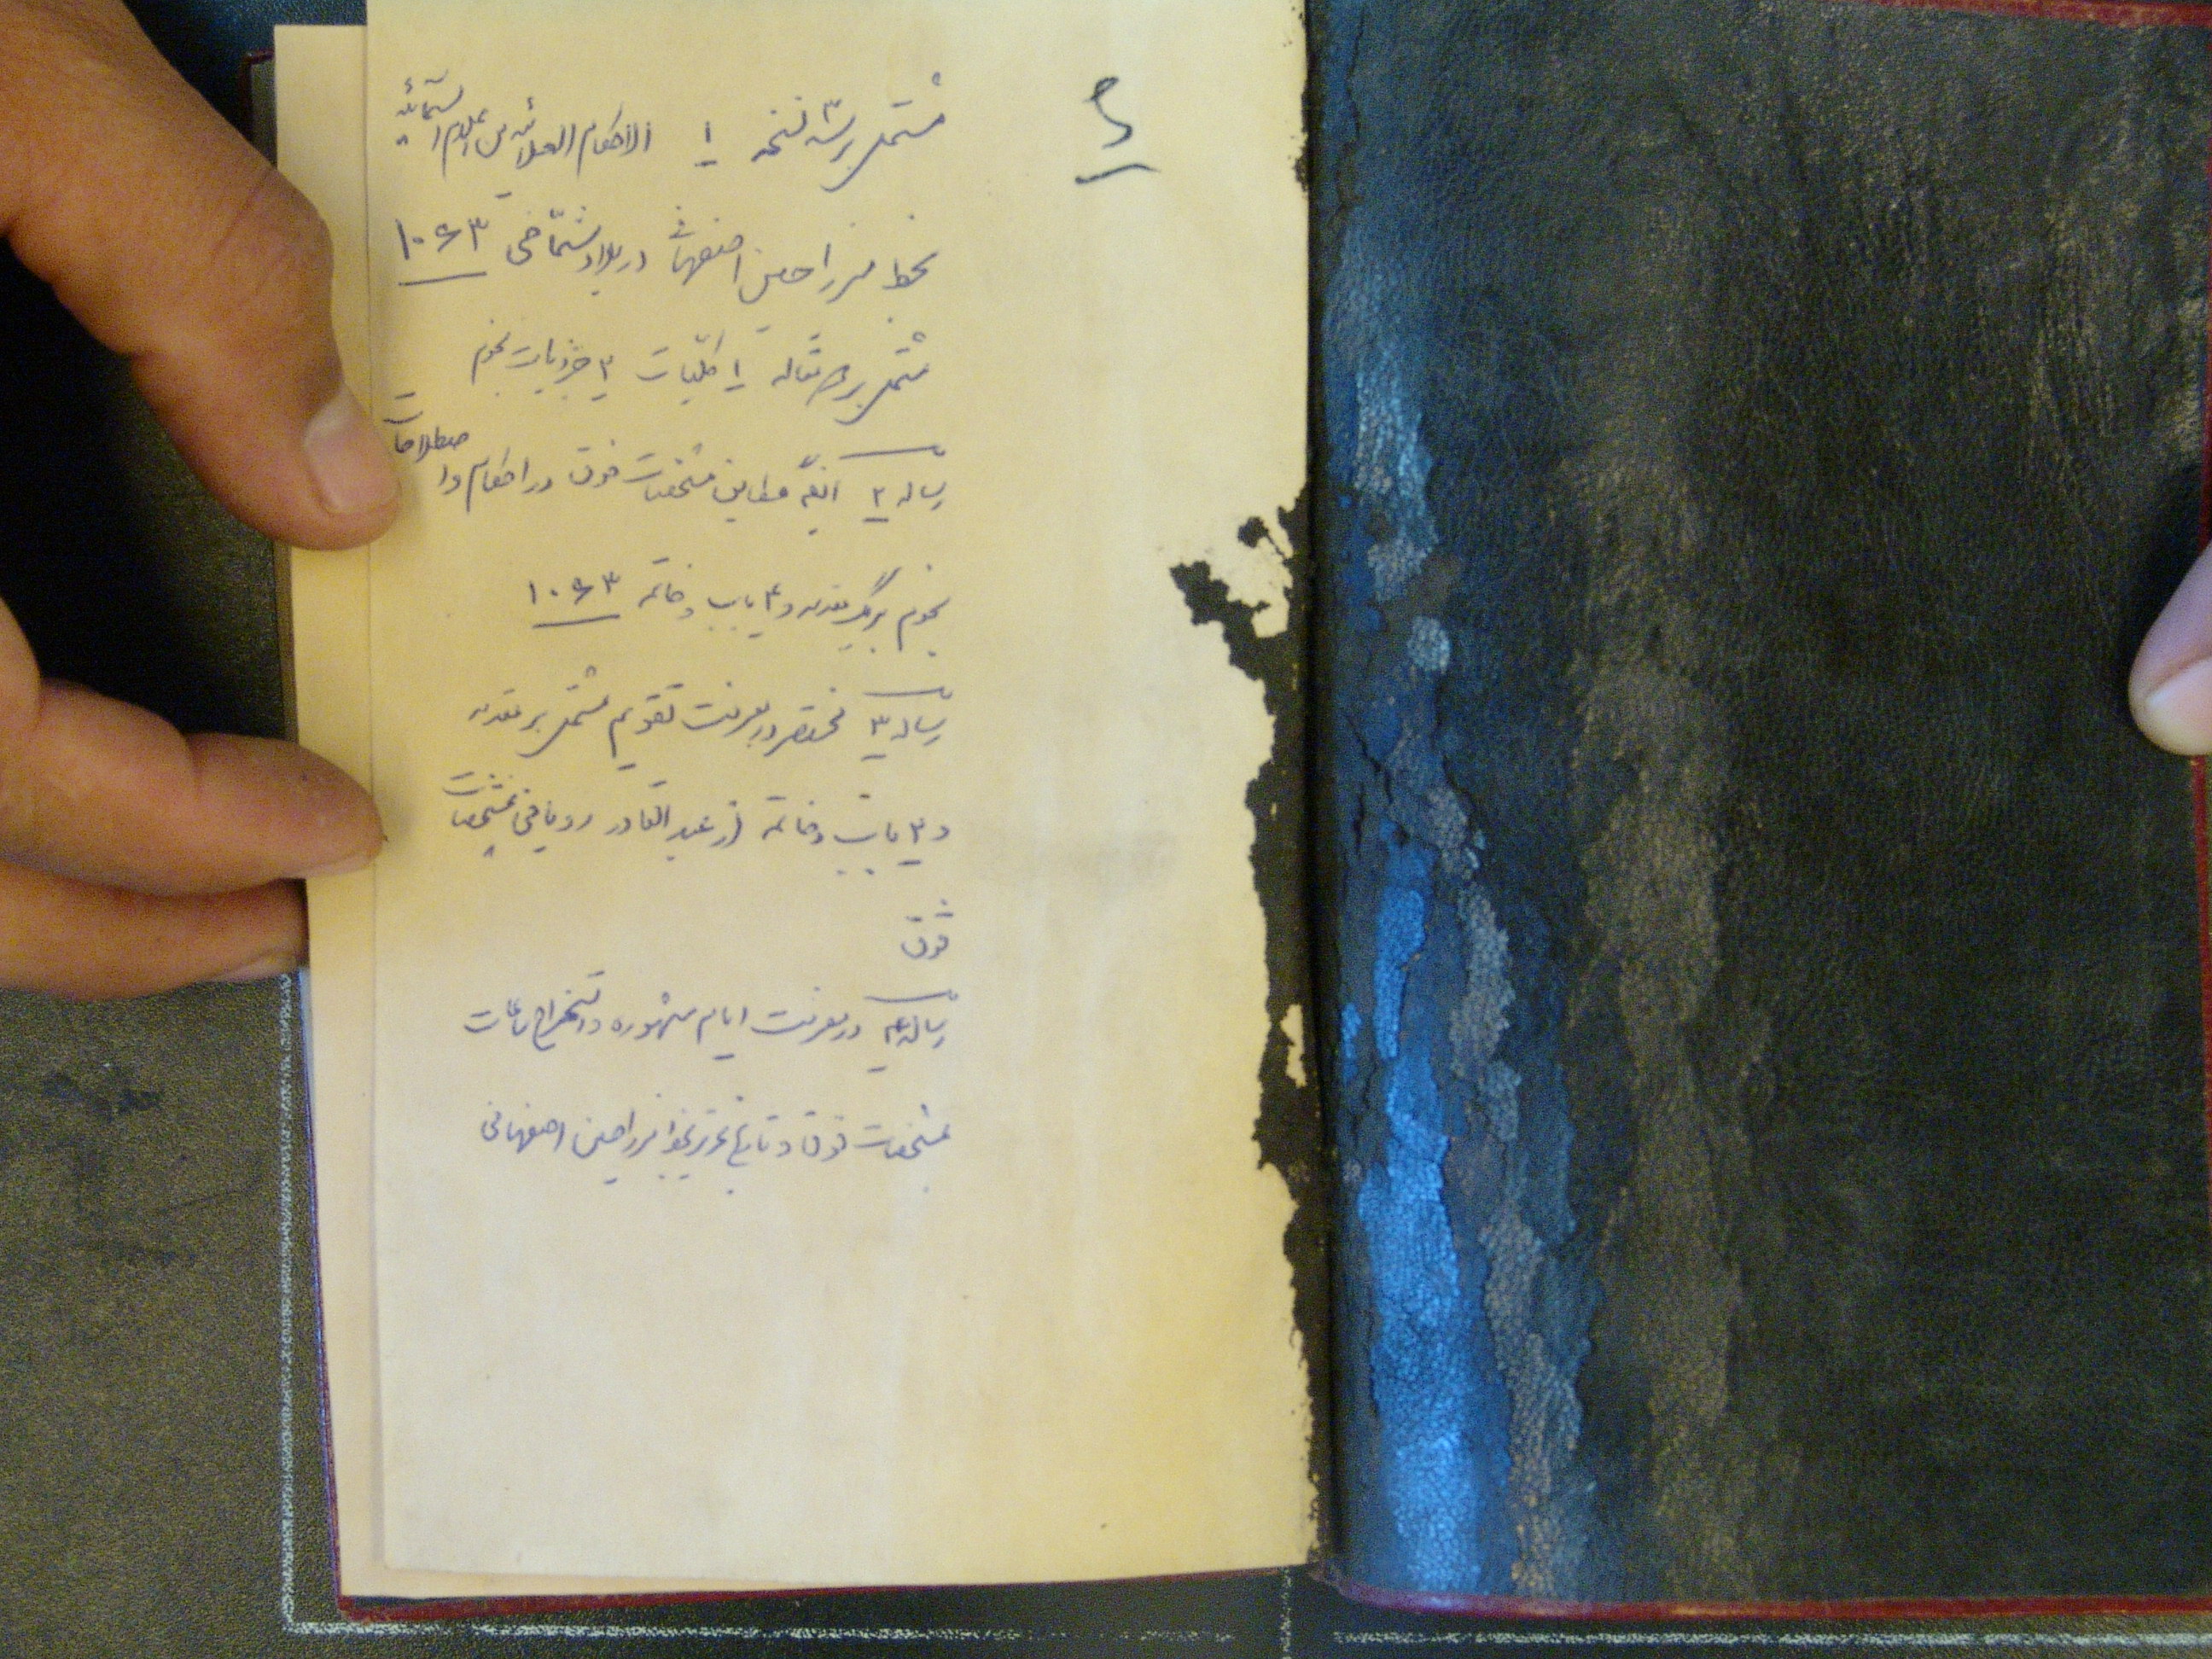 ۶
مشتمل بر سه نسخه ۱ الاحکام العلائیه من اعلام السمائیه
بخط میرزا حسین اصفهانی در بلاد شماخی ۱۰۶۳
مشتمل بر دو مقاله ۱ کلیات ۲ جزویات نجوم
رساله ۲ ایضاً مطابق مشخصات فوق در احکام و اصطلاحات
نجوم بر یک مقدمه و ۴ باب و خاتمه ۱۰۶۳
رساله ۳ مختصر در معرفت تقویم مشتمل بر مقدمه
و ۳ باب و خاتمه از عبد القادر رویانی بمشخصات
فوق
رساله ۴ در معرفت ایام مشهوره و استخراج ساعات
بمشخصات فوق و تاریخ تحریر بخط میرزا حسین اصفهانی